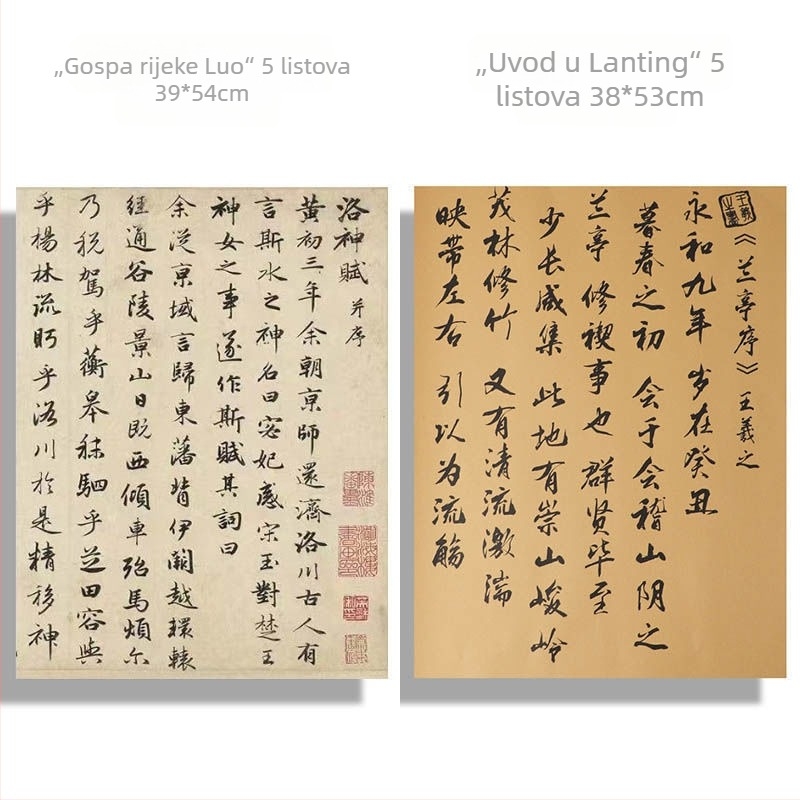 „Gospa rijeke Luo“ 5 listova
39*54cm
„Uvod u Lanting“ 5
listova 38*53cm
洛神賦 并序
黄初三年余朝京師還濟洛川古人有
言斯水之神名曰宓妃感宋玉對楚王
神女之事遂作斯賦其詞曰
余從京域言歸東藩背伊闕越轘轅
經通谷陵景山日既西傾車殆馬煩尔
乃税駕乎蘅皋秣駟乎芝田容與
乎楊林流眄乎洛川於是精移神
《兰亭序》王羲之
永和九年 岁在癸丑
暮春之初 会于会稽山阴之
兰亭 修禊事也 群贤毕至
少长咸集 此地有崇山峻岭
茂林修竹 又有清流激湍
映带左右 引以为流觞